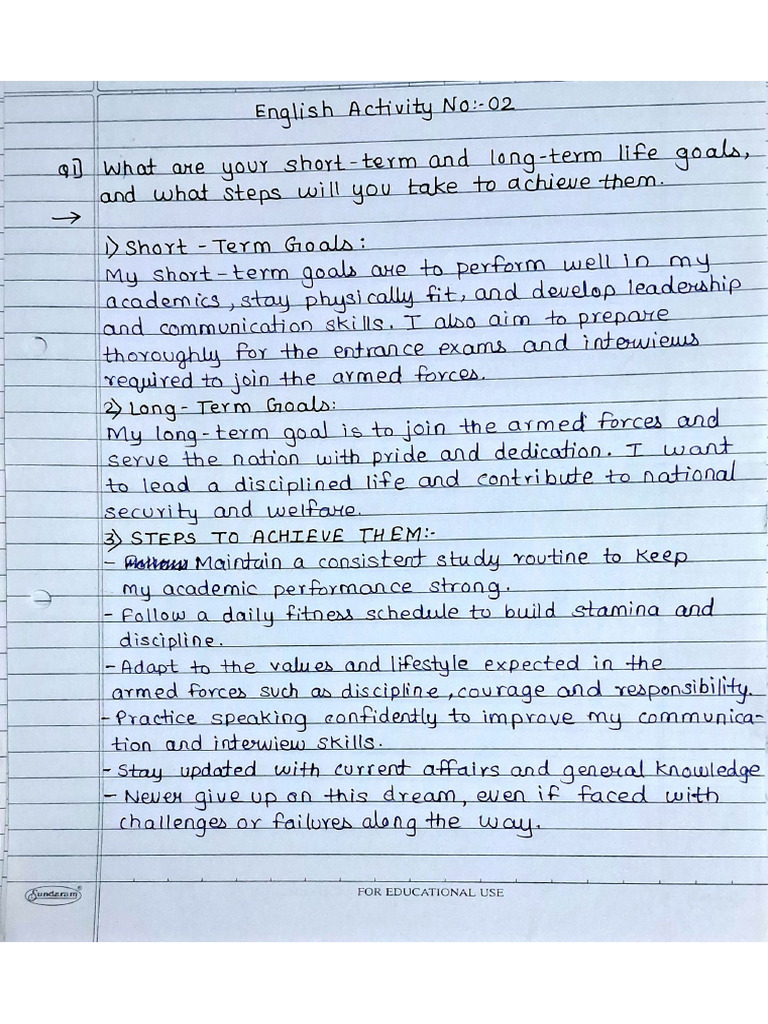 English Activity No:-02
Q1] What are your short-term and long-term life goals,
and what steps will you take to achieve them.
→
1) Short - Term Goals:
My short-term goals are to perform well in my
academics, stay physically fit, and develop leadership
and communication skills. I also aim to prepare
thoroughly for the entrance exams and interviews
required to join the armed forces.
2) Long - Term Goals:
My long-term goal is to join the armed forces and
serve the nation with pride and dedication. I want
to lead a disciplined life and contribute to national
security and welfare.
3) STEPS TO ACHIEVE THEM:-
- Maintain a consistent study routine to keep
my academic performance strong.
- Follow a daily fitness schedule to build stamina and
discipline.
- Adapt to the values and lifestyle expected in the
armed forces such as discipline, courage and responsibility.
- Practice speaking confidently to improve my communica-
tion and interview skills.
- Stay updated with current affairs and general knowledge
- Never give up on this dream, even if faced with
challenges or failures along the way.
Sundaram®
FOR EDUCATIONAL USE